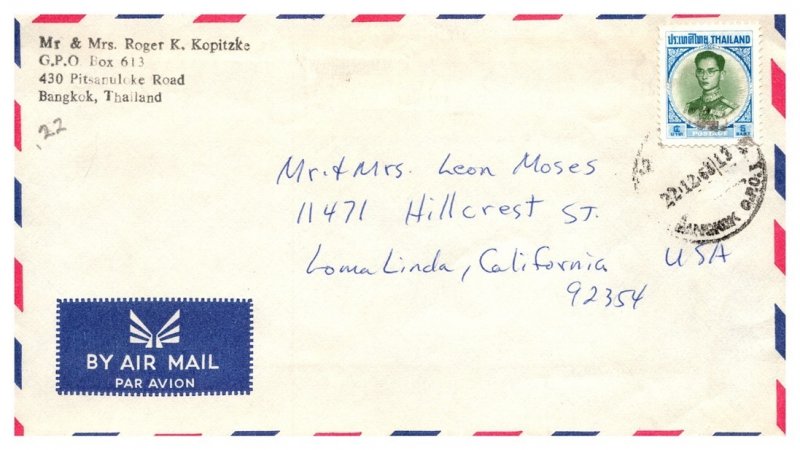 Mr & Mrs. Roger K. Kopitzke
G.P.O Box 613
430 Pitsanuloke Road
Bangkok, Thailand
.22
ประเทศไทย THAILAND
POSTAGE
บาท
BAHT
22.12.68
BANGKOK G.P.O.
Mr. & Mrs. Leon Moses
11471 Hillcrest ST.
Loma Linda, California USA
92354
BY AIR MAIL
PAR AVION